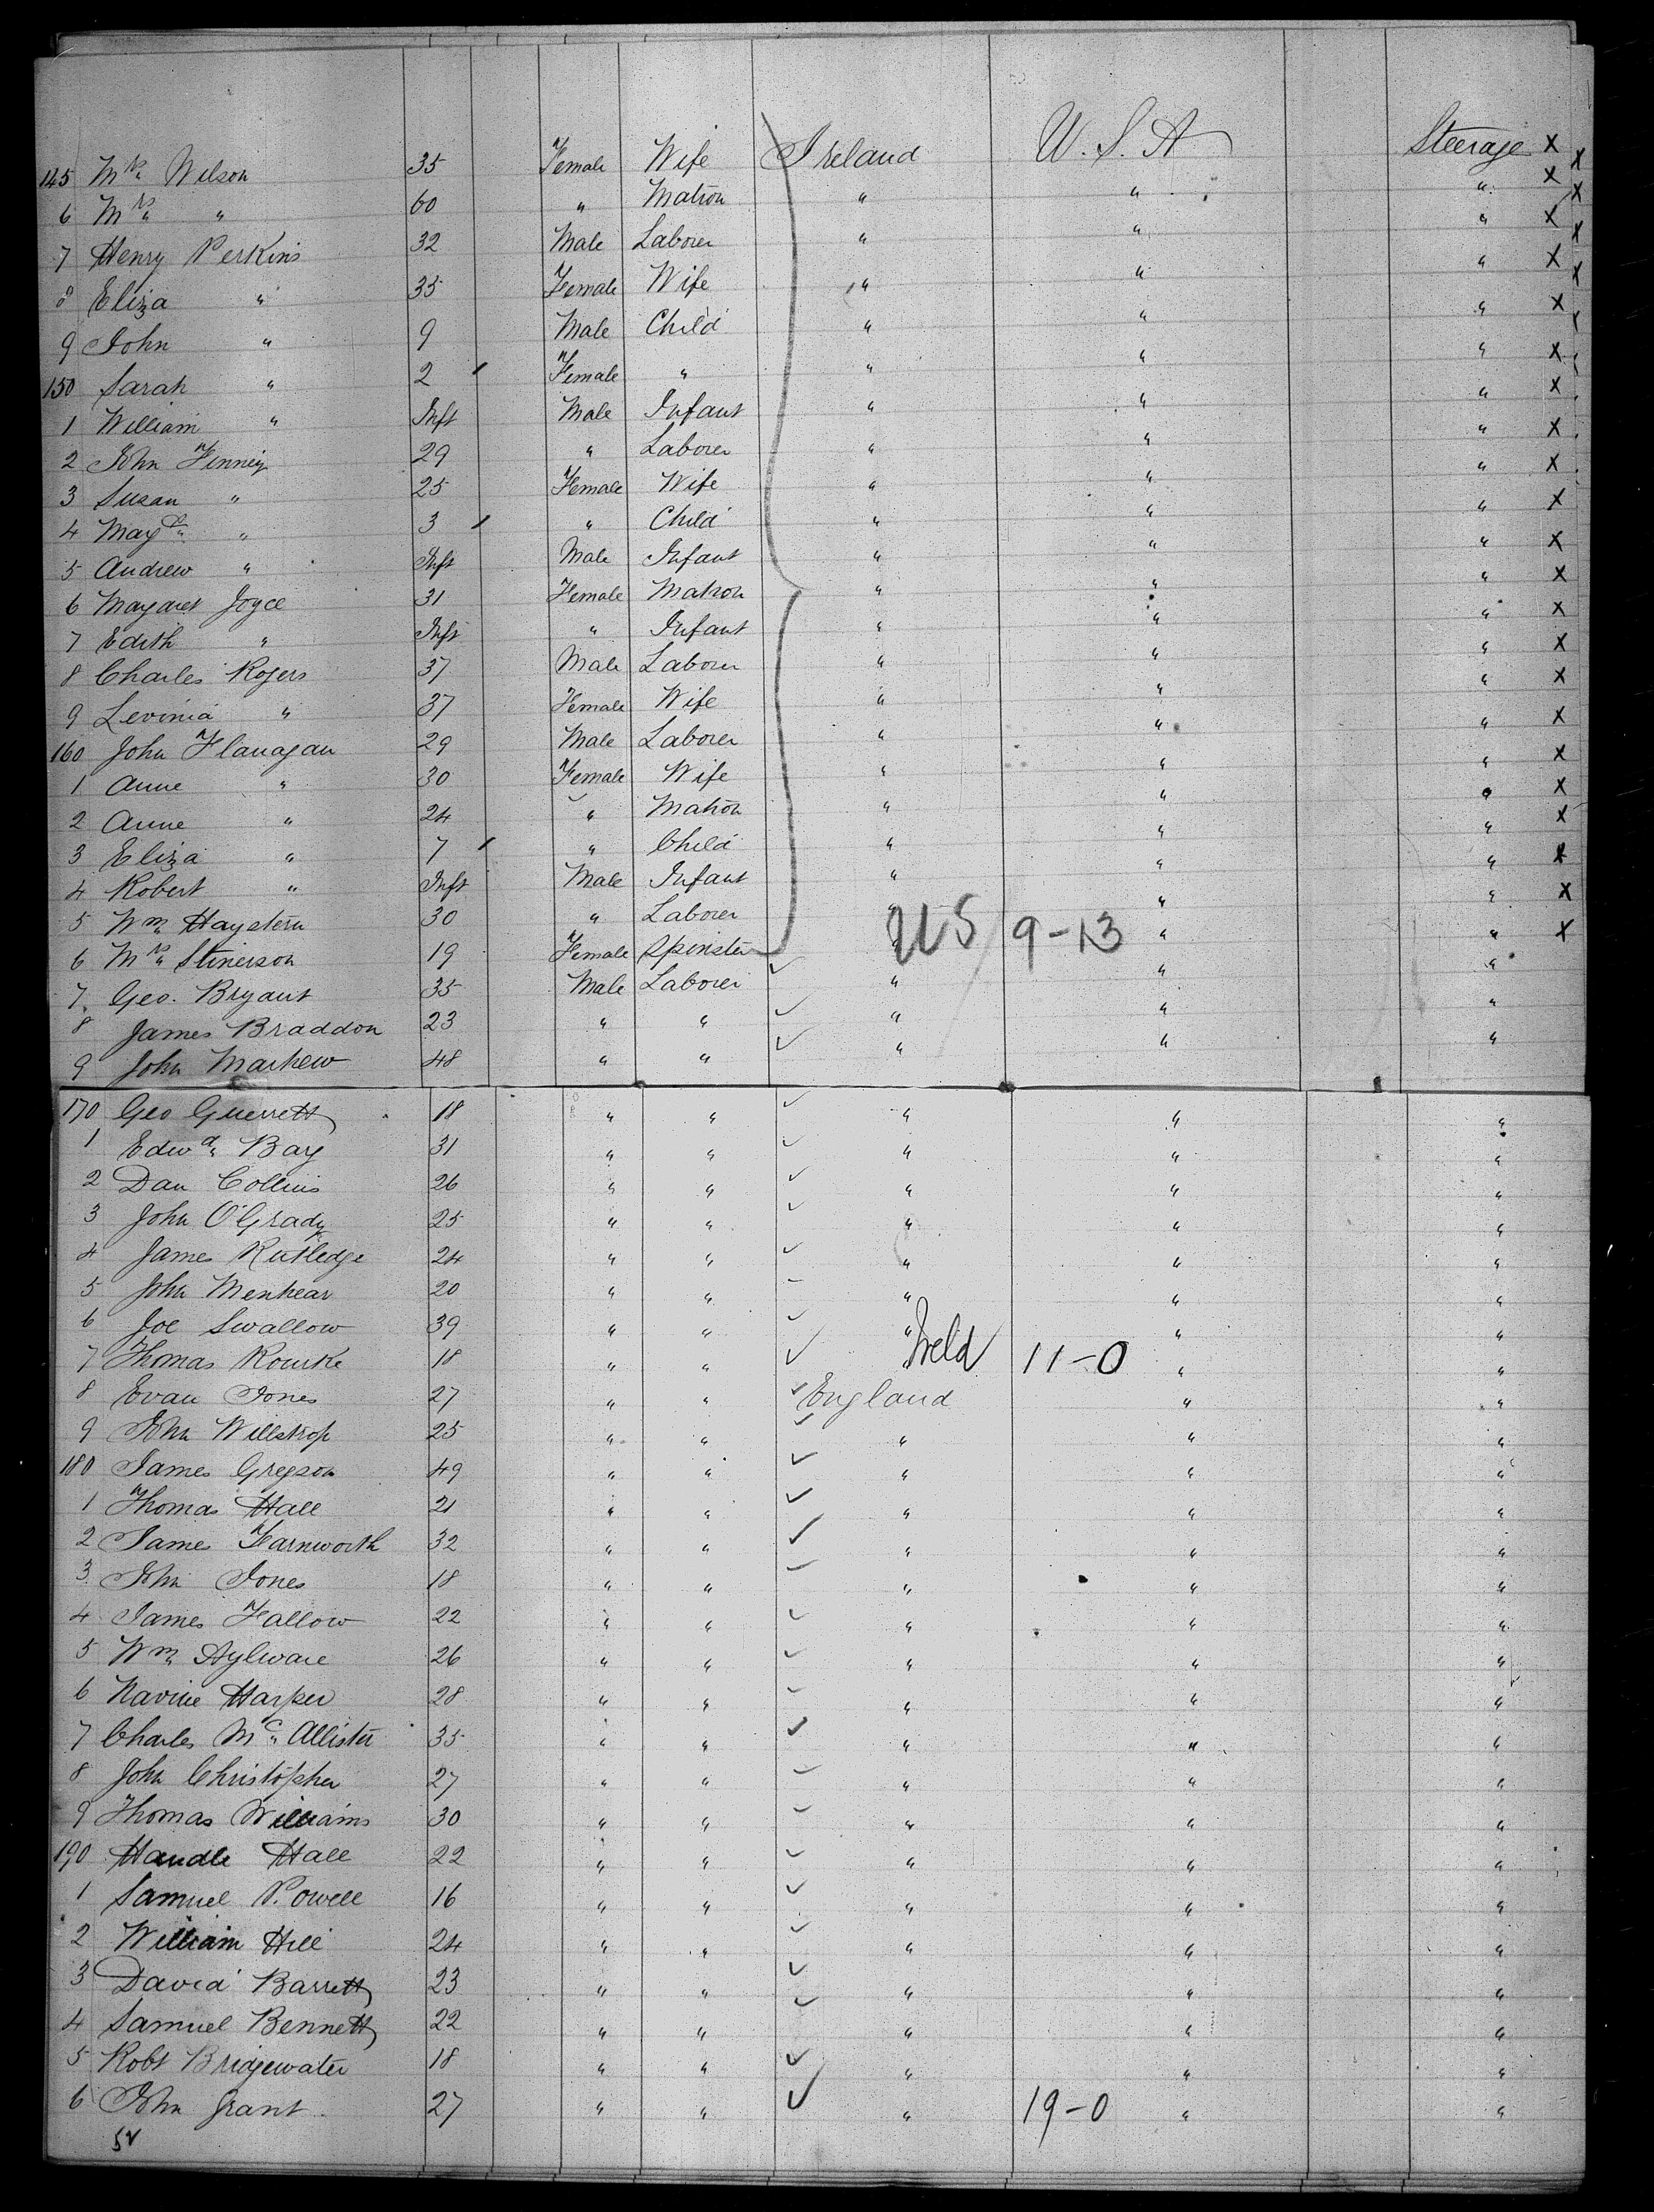 145 Mrs Wilson 35 Female Wife Ireland U.S.A Steerage X
6 Mrs " 60 " Matron " " " X
7 Henry Perkins 32 Male Laborer " " " X
8 Eliza " 35 Female Wife " " " X
9 John " 9 Male Child " " " X
150 Sarah " 2 Female " " " " X
1 William " Inft Male Infant " " " X
2 John Finney 29 " Laborer " " " X
3 Susan " 25 Female Wife " " " X
4 May " 3 " Child " " " X
5 Andrew " Inft Male Infant " " " X
6 Margaret Joyce 31 Female Matron " " " X
7 Edith " Inft " Infant " " " X
8 Charles Rogers 37 Male Laborer " " " X
9 Levinia " 37 Female Wife " " " X
160 John Flanagan 29 Male Laborer " " " X
1 Anne " 30 Female Wife " " " X
2 Anne " 24 " Matron " " " X
3 Eliza " 7 " Child " " " X
4 Robert " Inft Male Infant " " " X
5 Wm Haystern 30 " Laborer " " " X
6 Mrs Stinerson 19 Female Spinster " US 9-13 " " X
7 Geo. Bryant 35 Male Laborer " " "
8 James Braddon 23 " " " " "
9 John Markew 48 " " " " "
170 Geo Guerrett 18 " " " " "
1 Edwd Bay 31 " " " " "
2 Dan Collins 26 " " " " "
3 John O'Grady 25 " " " " "
4 James Rutledge 24 " " " " "
5 John Menhear 20 " " " " "
6 Joe Swallow 39 " " " " "
7 Thomas Rourke 18 " " " Ireld 11-0 " "
8 Evan Jones 27 " " England " "
9 John Willstrop 25 " " " " "
180 James Gregson 49 " " " " "
1 Thomas Hall 21 " " " " "
2 James Farnworth 32 " " " " "
3 John Jones 18 " " " " "
4 James Fallow 22 " " " " "
5 Wm Aylware 26 " " " " "
6 Navine Harper 28 " " " " "
7 Charles McAllister 35 " " " " "
8 John Christopher 27 " " " " "
9 Thomas Williams 30 " " " " "
190 Handle Hall 22 " " " " "
1 Samuel Powell 16 " " " " "
2 William Hill 24 " " " " "
3 David Barrett 23 " " " " "
4 Samuel Bennett 22 " " " " "
5 Robt Bridgewater 18 " " " " "
6 John Grant 27 " " " 19-0 " "
52